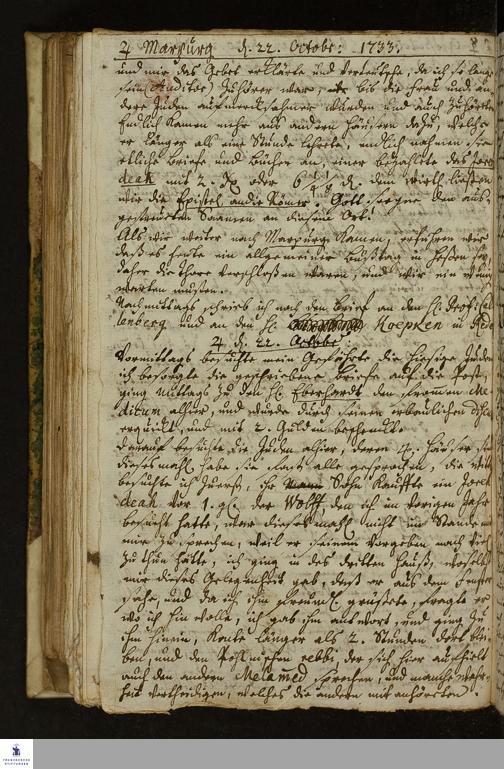 ♃ Marpurg d. 22. Octobr: 1733.
und mir das Gebet erklärte und verteutschte, da ich so lange
sein (Auditor) Zuhörer ware, bis die Frau und an
dere Juden aufmercksahmer wurden und auch zuhörten
Endlich kamen mehr aus andern Häusern dazu, welche
er länger als eine Stunde lehrete, endlich nahmen sie
etliche Briefe und Bücher an, einer bezahlte das
deah mit 2. oder 6 d. dem Wirth liessen
wir die Epistel an die Römer. Gott segne den aus-
gestreueten Saamen an diesem Ort!
Als wir weiter nach Marpurg kamen, erfuhren wir
daß es heute ein allgemeiner Bußtag in Hessen sey
daher die Thore verschloßen waren, und wir ein wenig
warten musten.
Nachmittags schrieb ich noch den Brief an den H. Prof. Cal
lenberg und an den H. Koepken in
♃ d. 22. Octobr:
Vormittags besuchte mein Gefährte die hiesige Juden
ich besorgte die geschriebene Briefe auf die Post,
ging Mittags zu den H. Eberhardt den frommen Me
dicum alhier, und wurde durch seinen erbaulichen
erquickt, und mit 2. Gulden beschenckt.
Darauf besuchte die Juden alhier, deren 4. Häuser sind
dieses mahl habe sie fast alle gesprochen, die
besuchte ich zuerst, ihr Sohn kauffte ein Jored
deah vor 1. gl. der Wolff den ich im vorigen Jahr
besucht hatte, war dieses mahl nicht im Stande mit
mir zu sprechen, weil er seinem Vorgeben nach viel
zu thun hätte, ich ging in des dritten Hauß, woselbst
mir dieses Gelegenheit gab, daß er aus dem Fenster
sahe, und da ich ihn freundl. grüßete, fragte er
wo ich hin wolle, ich gab ihm antwort, und ging zu
ihm hinein, konte länger als 2. Stunden dort blei
ben, und den Pohlnischen rebbi, der sich hier aufhielt
auch den andern Melamed sprechen, und manche Wahr-
heit vertheidigen, welches die andern mit anhöreten